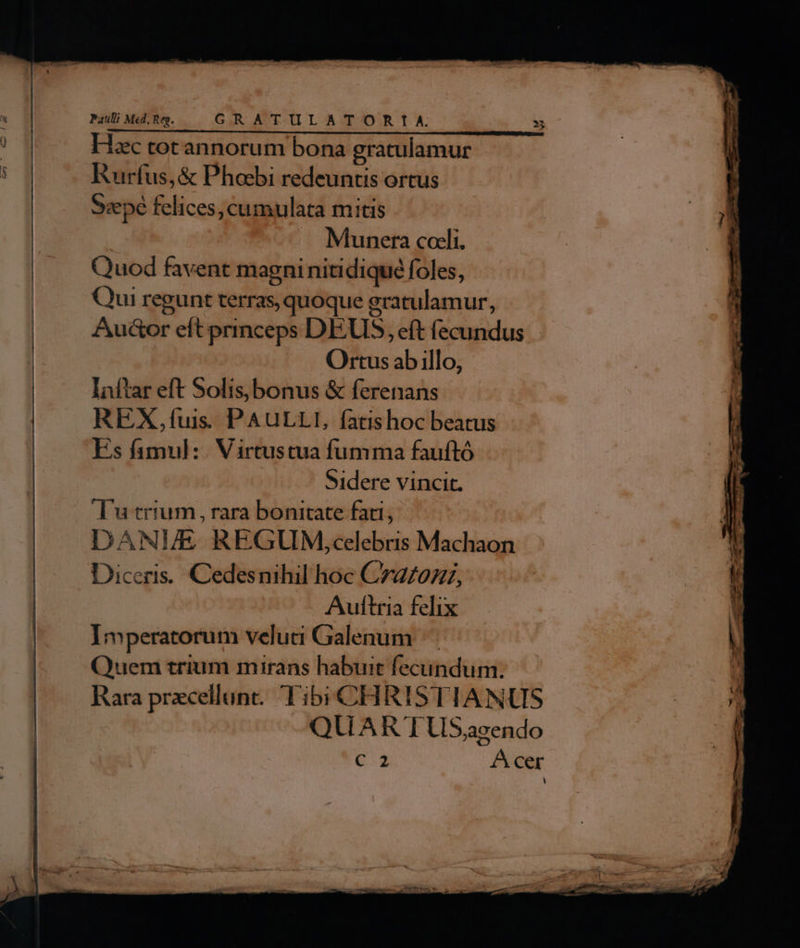 Paulli Med. Reg. GRATULATORIA.
Hæc tot annorum bona gratulamur
Rurſus, & Phœbi redeuntis ortus
Sæpè felices, cumulata mitis
Munera cœli.
Quod favent magni nitidiquè ſoles,
Qui regunt terras, quoque gratulamur,
Auctor eſt princeps DEUS, eſt ſecundus
Ortus ab illo,
Inſtar eſt Solis, bonus & ſerenans
REX, ſuis. PAULLI, fatis hoc beatus
Es ſimul: Virtus tua ſumma fauſtô
Sidere vincit.
Tu trium, rara bonitate fati,
DANIÆ REGUM, celebris Machaon
Diceris. Cedes nihil hoc Cratoni,
Auſtria felix
Imperatorum veluti Galenum
Quem trium mirans habuit ſecundum.
Rara præcellunt. Tibi CHRISTIANUS
QUARTUS, agendo
C 2 Acer